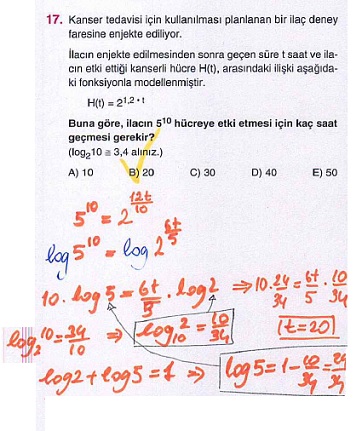 17. Kanser tedavisi için kullanılması planlanan bir ilaç deney
faresine enjekte ediliyor.
İlacın enjekte edilmesinden sonra geçen süre t saat ve ila-
cın etki ettiği kanserli hücre H(t), arasındaki ilişki aşağıda-
ki fonksiyonla modellenmiştir.
H(t) = 2^1,2 · t
Buna göre, ilacın 5^10 hücreye etki etmesi için kaç saat
geçmesi gerekir?
(log₂10 ≅ 3,4 alınız.)
A) 10 B) 20 C) 30 D) 40 E) 50
5^10 = 2^(12t/10)
log 5^10 = log 2^(6t/5)
10 · log 5 = 6t/5 · log 2 ⇒ 10 · 24/34 = 6t/5 · 10/34
log₂10 = 34/10 ⇒ log₁₀2 = 10/34 |t=20|
log2 + log5 = 1 ⇒ log5 = 1 - 10/34 = 24/34